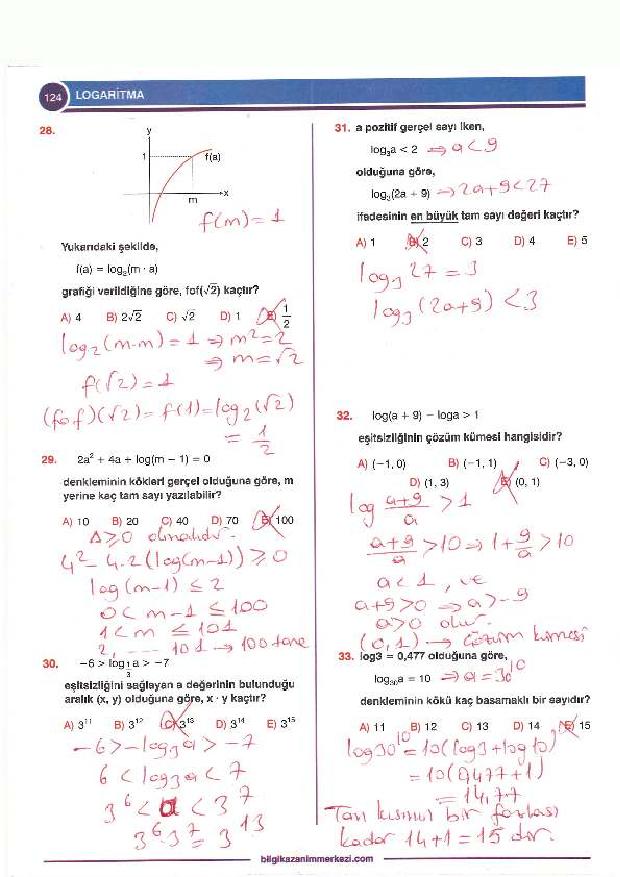 124 LOGARİTMA
28.
y
1
f(a)
m
x
f(m) = 1
Yukarıdaki şekilde,
f(a) = log₂(m · a)
grafiği verildiğine göre, fof(√2) kaçtır?
A) 4 B) 2√2 C) √2 D) 1 E) 1/2
log₂(m·m) = 1 ⇒ m² = 2
⇒ m = √2
f(√2) = 1
(fof)(√2) = f(1) = log₂(√2)
= 1/2
29. 2a² + 4a + log(m − 1) = 0
denkleminin kökleri gerçel olduğuna göre, m
yerine kaç tam sayı yazılabilir?
A) 10 B) 20 C) 40 D) 70 E) 100
Δ ≥ 0 olmalıdır.
4² − 4.2(log(m−1)) ≥ 0
log(m−1) ≤ 2
0 < m−1 ≤ 100
1 < m ≤ 101
2, ---- 101 → 100 tane
30. −6 > log_{1/3} a > −7
eşitsizliğini sağlayan a değerinin bulunduğu
aralık (x, y) olduğuna göre, x · y kaçtır?
A) 3¹¹ B) 3¹² C) 3¹³ D) 3¹⁴ E) 3¹⁵
−6 > −log₃a > −7
6 < log₃a < 7
3⁶ < a < 3⁷
3⁶·3⁷ = 3¹³
31. a pozitif gerçel sayı iken,
log₃a < 2 ⇒ a < 9
olduğuna göre,
log₃(2a + 9) ⇒ 2a+9 < 27
ifadesinin en büyük tam sayı değeri kaçtır?
A) 1 B) 2 C) 3 D) 4 E) 5
log₃ 27 = 3
log₃(2a+9) < 3
32. log(a + 9) − loga > 1
eşitsizliğinin çözüm kümesi hangisidir?
A) (−1, 0) B) (−1, 1) C) (−3, 0)
D) (1, 3) E) (0, 1)
log (a+9)/a > 1
(a+9)/a > 10 ⇒ 1 + 9/a > 10
a < 1, ve
a+9 > 0 ⇒ a > −9
a > 0 olur.
(0,1) → çözüm kümesi
33. log3 = 0,477 olduğuna göre,
log₃₀a = 10 ⇒ a = 30¹⁰
denkleminin kökü kaç basamaklı bir sayıdır?
A) 11 B) 12 C) 13 D) 14 E) 15
log30¹⁰ = 10(log3 + log10)
= 10(0,477 + 1)
= 14,77
Tam kısmın bir fazlası
kadar 14+1 = 15 dir.
bilgikazanimmerkezi.com